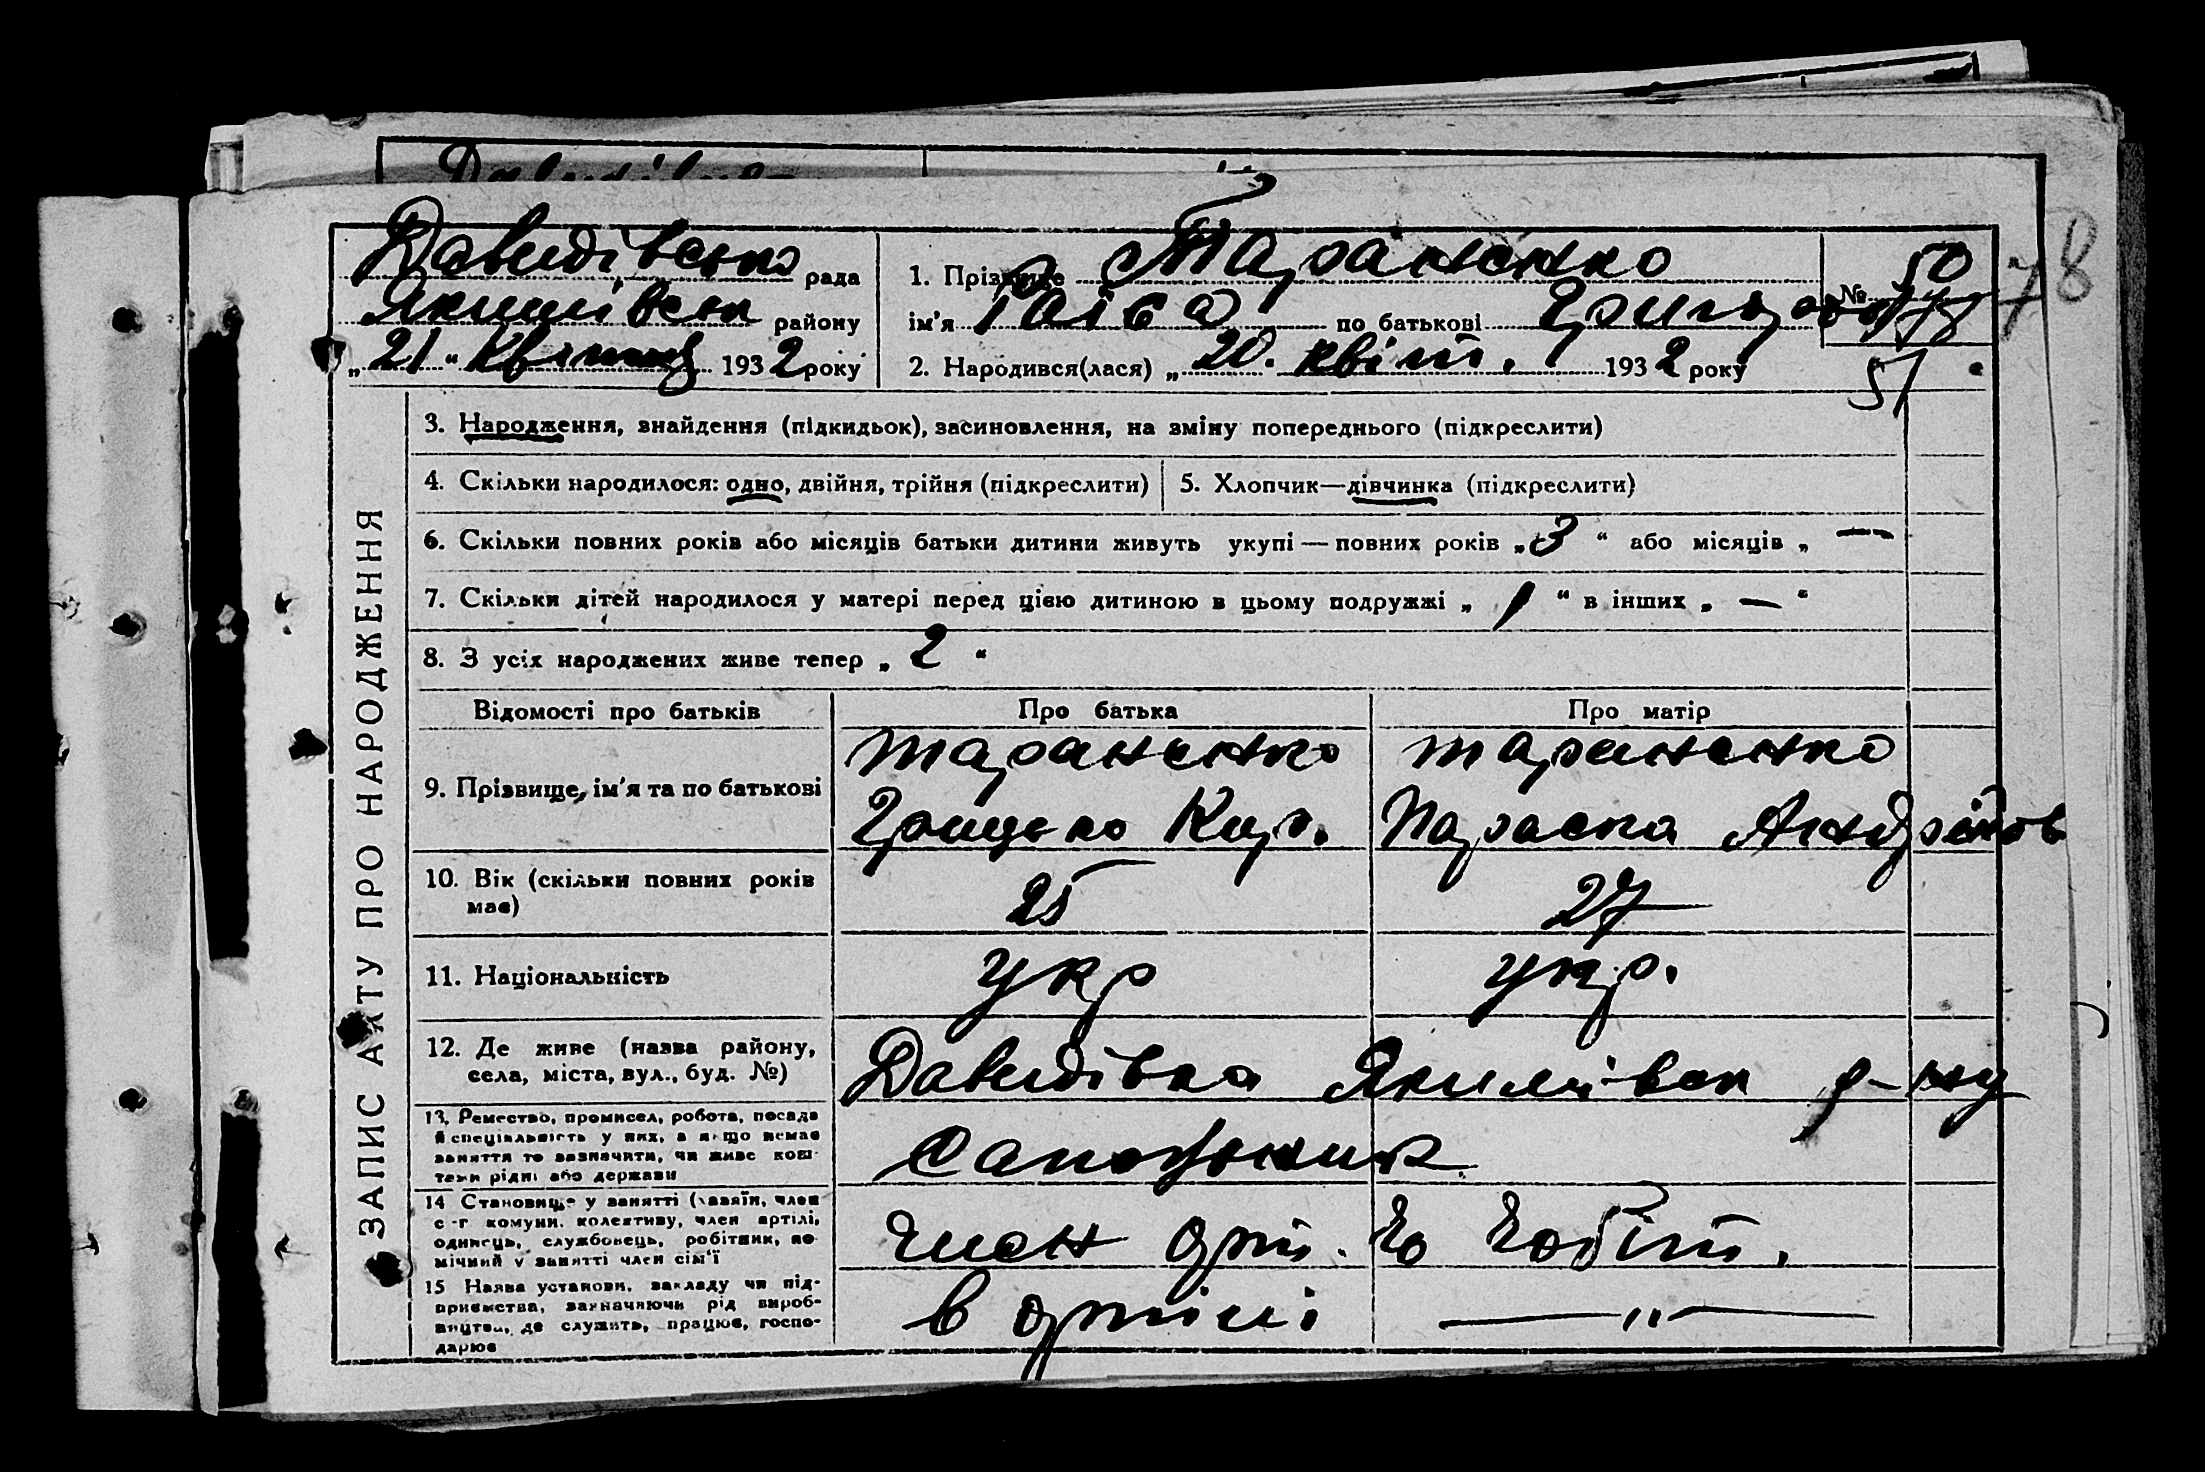 Давидівська рада
Якимівськ району
„ 21 " квітня 1932 року
1. Прізвище Тараненко
ім'я Раіса по батькові Григоров
2. Народився(лася) „ 20. квіт. 1932 року
№ 50
51
78
ЗАПИС АКТУ ПРО НАРОДЖЕННЯ
3. Народження, знайдення (підкидьок), засиновлення, на зміну попереднього (підкреслити)
4. Скільки народилося: одно, двійня, трійня (підкреслити)
5. Хлопчик—дівчинка (підкреслити)
6. Скільки повних років або місяців батьки дитини живуть укупі — повних років „ 3 “ або місяців „ —
7. Скільки дітей народилося у матері перед цією дитиною в цьому подружжі „ 1 “ в інших „ — “
8. З усіх народжених живе тепер „ 2 “
Відомості про батьків Про батька Про матір
9. Прізвище, ім'я та по батькові
Тараненко
Грицько Кир.
Тараненко
Параска Андрійов
10. Вік (скільки повних років
має)
25 27
11. Національність укр укр.
12. Де живе (назва району,
села, міста, вул., буд. №)
Давидівка Якимівськ р-ну
13. Ремество, промисел, робота, посада
й спеціальність у них, а якщо немає
заняття то зазначити, чи живе кош-
тами рідні або держави
Сапожник
14 Становище у занятті (хазяїн, член
с-г комуни, колективу, член артілі,
одинець, службовець, робітник, по-
мічний у занятті член сім'ї
член арт.
15 Назва установи, закладу чи під-
приємства, зазначаючи рід вироб-
ництва, де служить, працює, госпо-
дарює
в артілі — " —